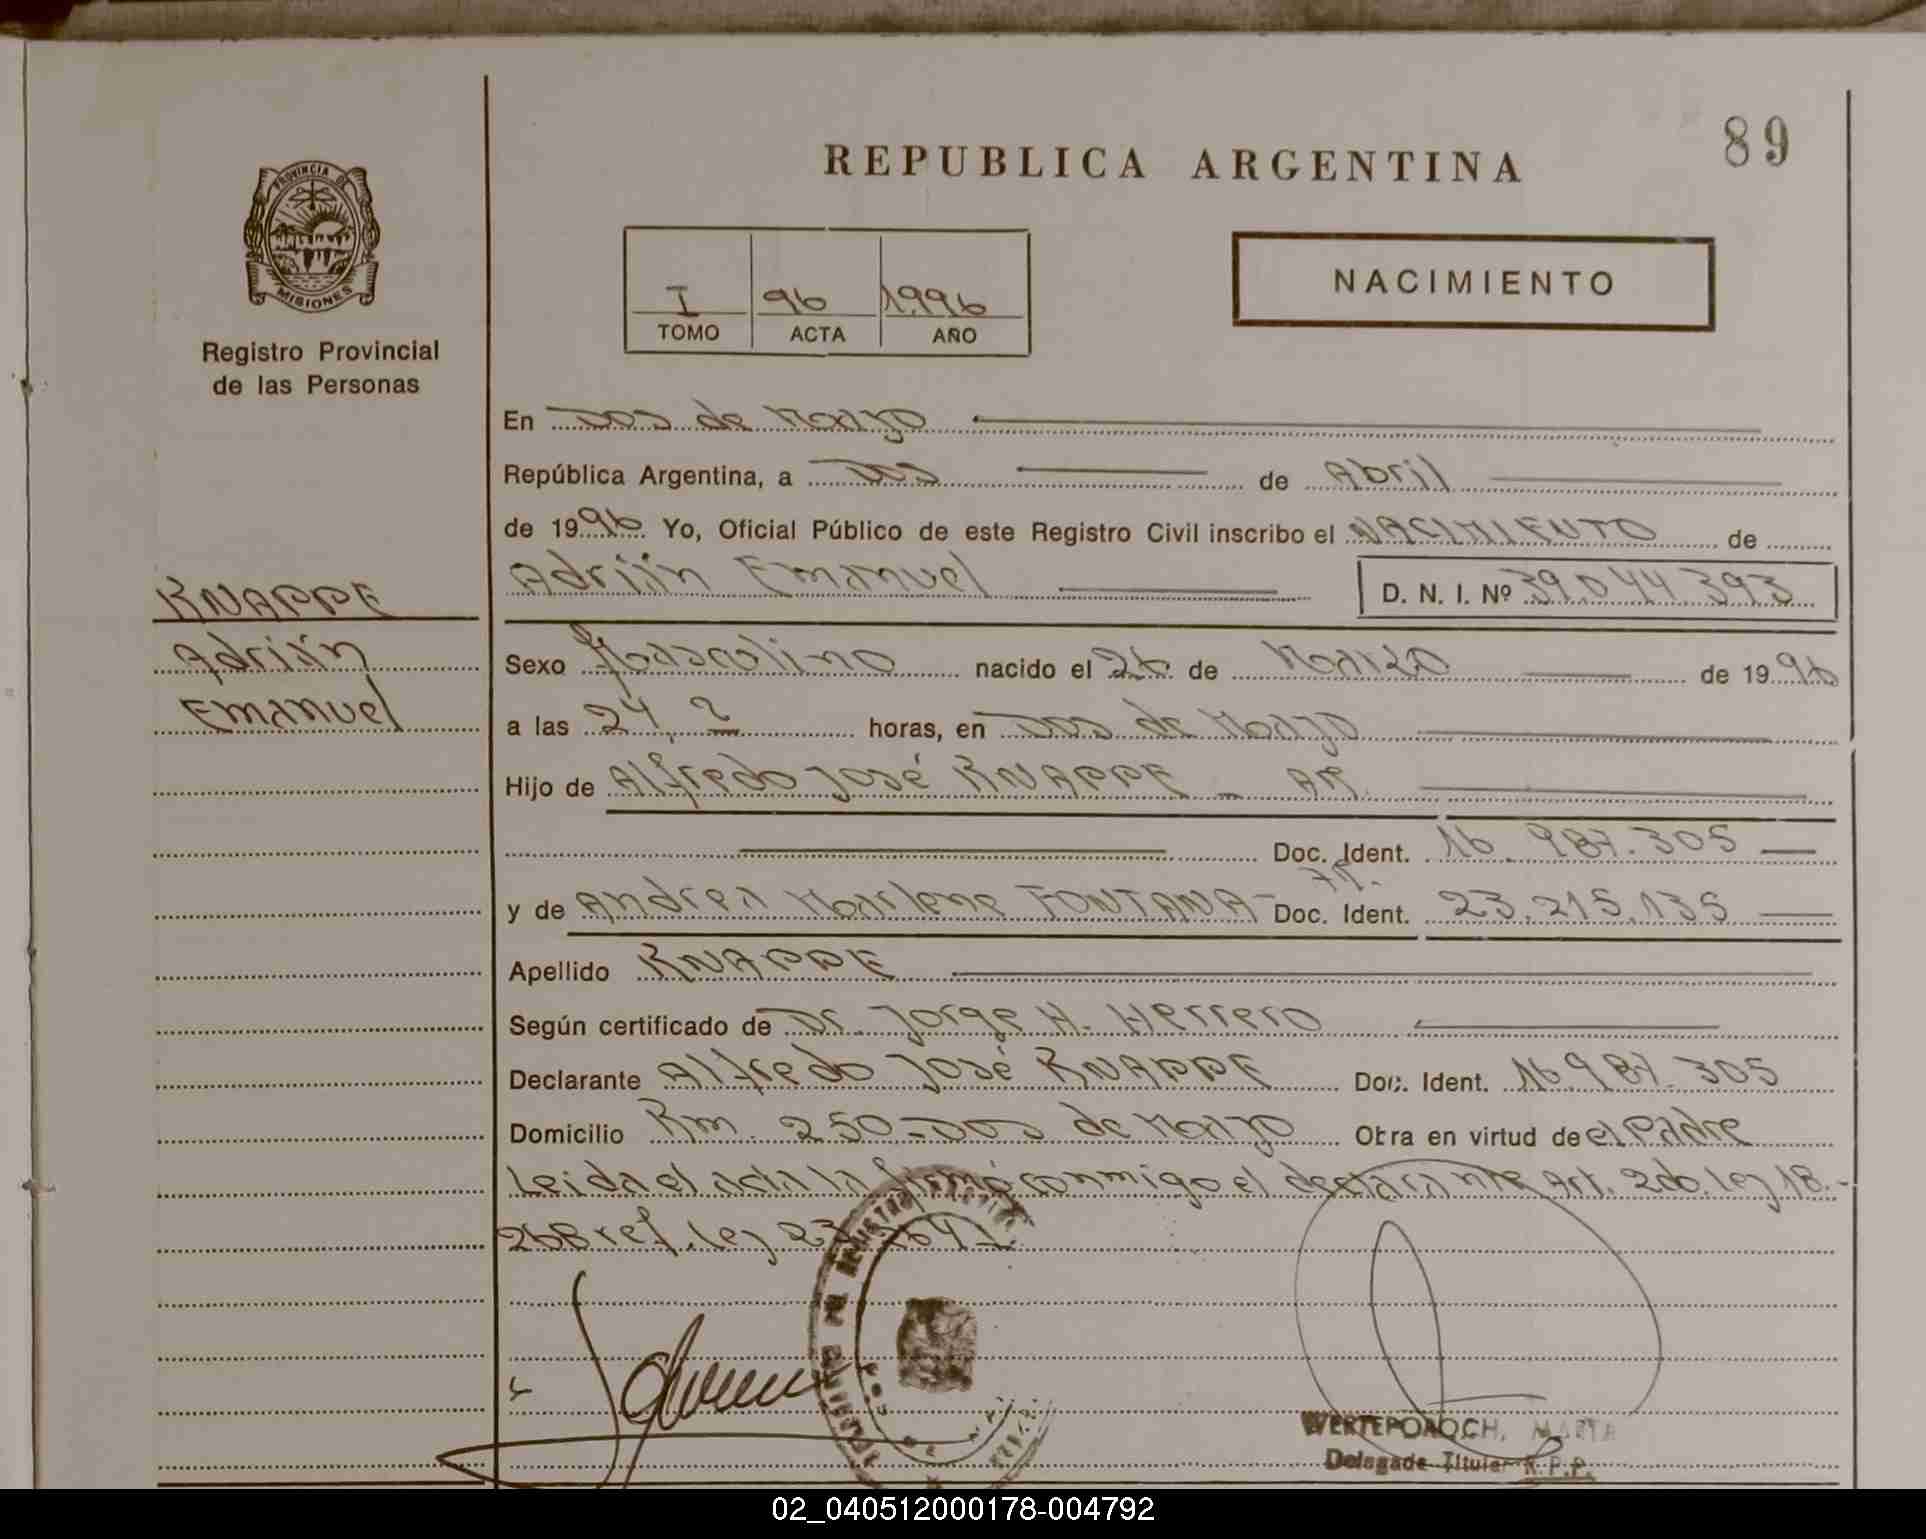 89
REPUBLICA ARGENTINA
PROVINCIA DE
MISIONES
Registro Provincial
de las Personas
I 96 1.996
TOMO ACTA AÑO
NACIMIENTO
En Dos de Mayo
República Argentina, a Dos de Abril
de 1996 Yo, Oficial Público de este Registro Civil inscribo el NACIMIENTO de
Adrián Emanuel D. N. I. Nº 39.044.393
KNAPPE
Adrián
Emanuel
Sexo Masculino nacido el 26 de Marzo de 1996
a las 24, horas, en Dos de Mayo
Hijo de Alfredo José KNAPPE - Ar.
Doc. Ident. 16.987.305
y de Andrea Marlene FONTANA - Ar. Doc. Ident. 23.215.135
Apellido KNAPPE
Según certificado de Dr. Jorge H. Herrero
Declarante Alfredo José KNAPPE Doc. Ident. 16.987.305
Domicilio Km. 250 - Dos de Mayo Obra en virtud de el Padre
Leida el acta la firmó conmigo el declarante Art. 2do. Ley 18.-
268 ref. Ley 23
WERTEPOROCH, MARTA
Delegada Titular R.P.P.
02_040512000178-004792